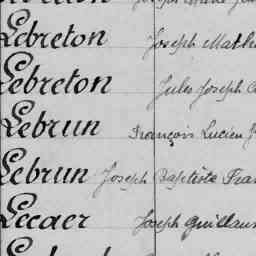 Lebreton Joseph Math
Lebreton Jules Joseph
Lebrun François Lucien
Lebrun Joseph Baptiste Fran
Lecaer Joseph Guillau